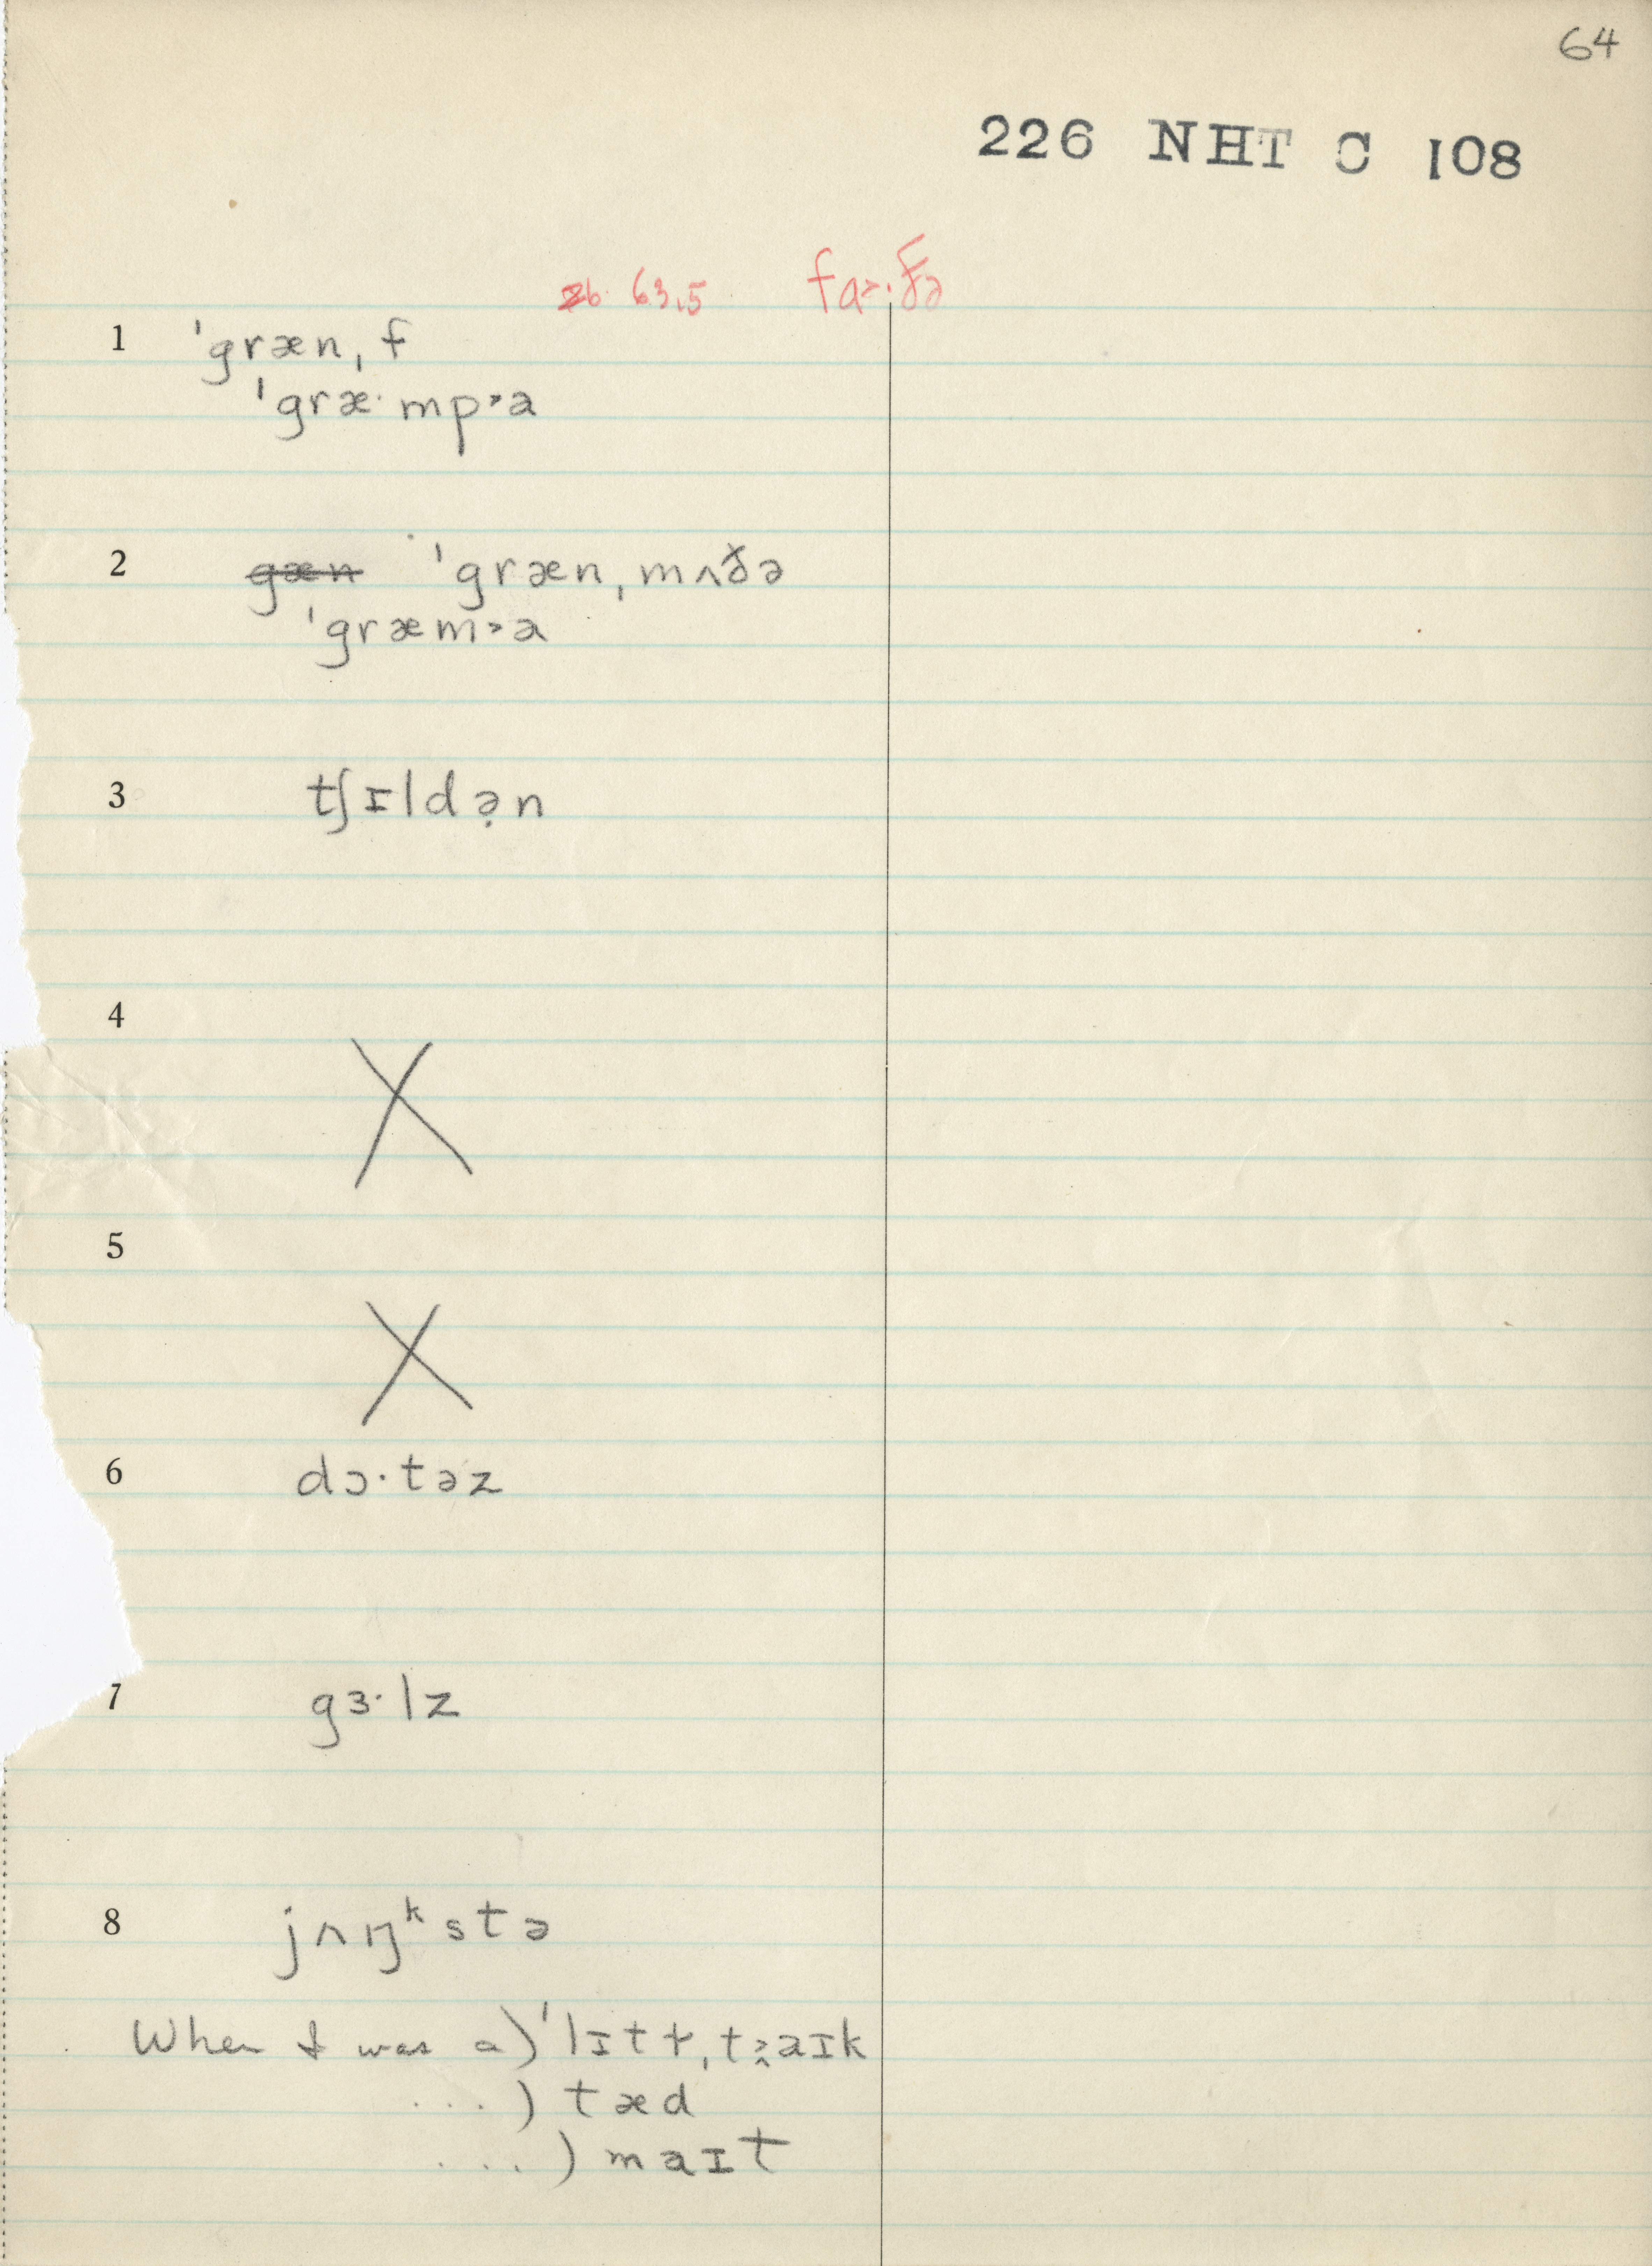 64
226 NHT C 108
zb 63.5 fa>·ðə
1 ˈgræn, f
ˈgræ· mp>a
2 gæn ˈgræn, mʌðə
ˈgræm>a
3 tʃɪldə̣n
4 X
5 X
6 dɔ·təz
7 gɜ·lz
8 jʌŋᵏstə
When I was a) ˈlɪtɫ, taɪk
...) tæd
...) maɪt